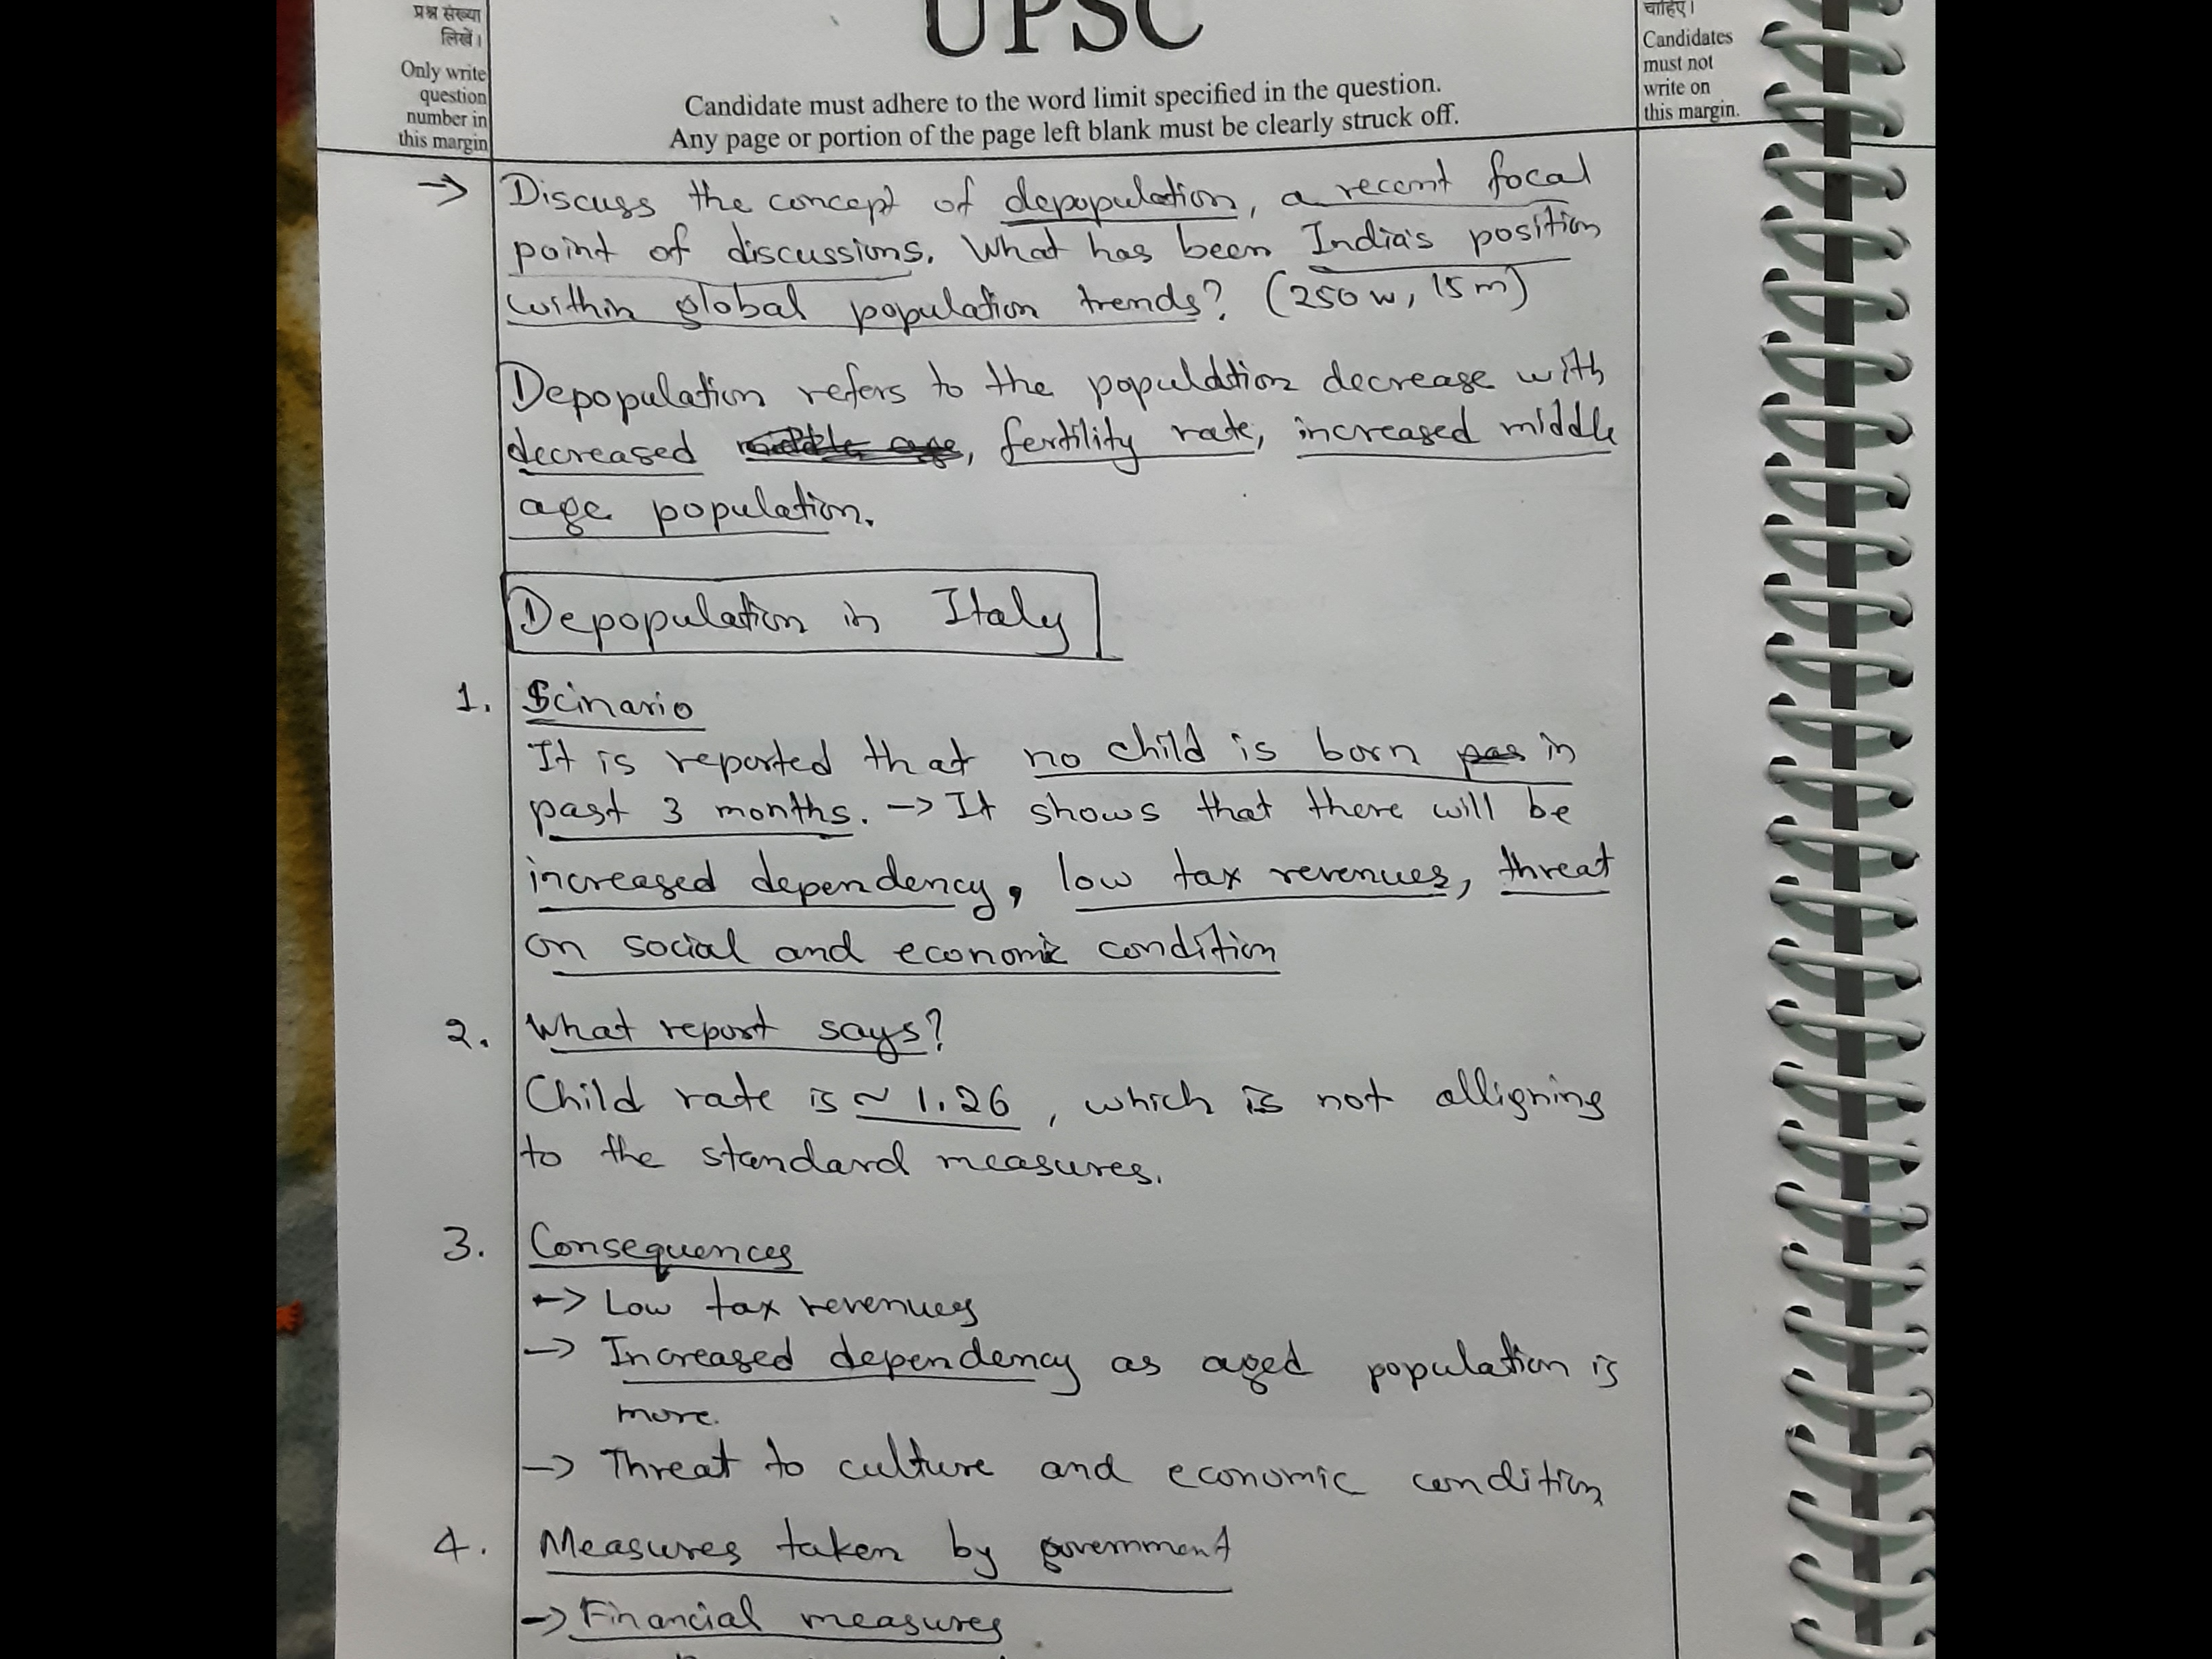 प्रश्न संख्या
लिखें।
Only write
question
number in
this margin
UPSC
Candidate must adhere to the word limit specified in the question.
Any page or portion of the page left blank must be clearly struck off.
चाहिए।
Candidates
must not
write on
this margin.
→ Discuss the concept of depopulation, a recent focal
point of discussions. What has been India's position
within global population trends? (250 w, 15 m)
Depopulation refers to the population decrease with
decreased , fertility rate, increased middle
age population.
Depopulation in Italy
1. Scinario
It is reported that no child is born in
past 3 months. → It shows that there will be
increased dependency, low tax revenues, threat
on social and economic condition
2. What report says?
Child rate is ~ 1.26, which is not alligning
to the standard measures.
3. Consequences
→ Low tax revenues
→ Increased dependency as aged population is
more.
→ Threat to culture and economic condition
4. Measures taken by government
→ Financial measures